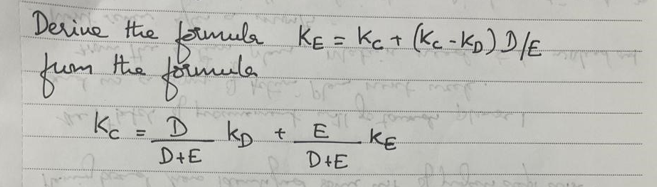 Derive the formula K_E = K_C + (K_C - K_D) D/E
from the formula
K_C = D/(D+E) K_D + E/(D+E) K_E